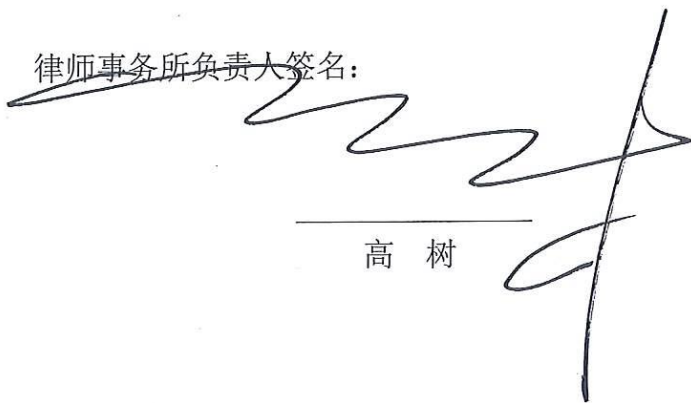 律师事务所负责人签名：
高 树